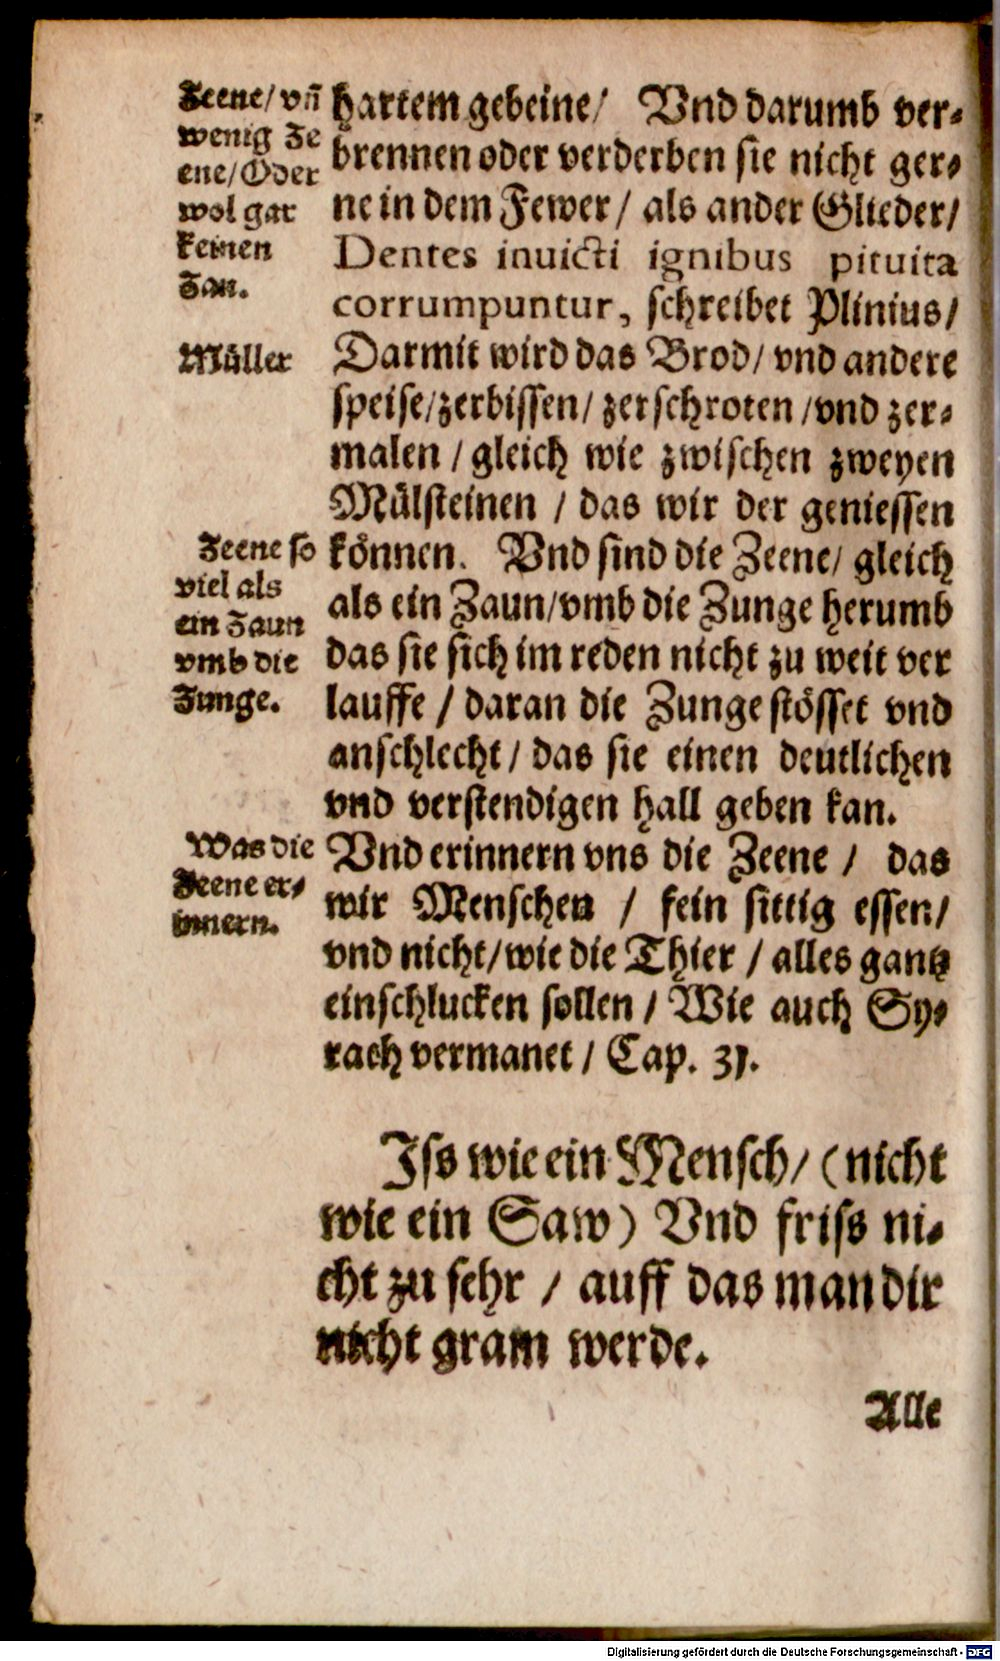 Zeene/ vñ
wenig Ze
ene/Oder
wol gar
keinen
Zan.
Müller
Zeene so
viel als
ein Zaun
vmb die
Zunge.
Was die
Zeene er⸗
innern.
hartem gebeine/ Vnd darumb ver⸗
brennen oder verderben sie nicht ger⸗
ne in dem Fewer / als ander Glieder/
Dentes inuicti ignibus pituita
corrumpuntur, schreibet Plinius/
Darmit wird das Brod/ vnd andere
speise/zerbissen/ zerschroten /vnd zer⸗
malen / gleich wie zwischen zweyen
Mülsteinen / das wir der geniessen
können. Vnd sind die Zeene/ gleich
als ein Zaun/vmb die Zunge herumb
das sie sich im reden nicht zu weit ver
lauffe / daran die Zunge stösset vnd
anschlecht / das sie einen deutlichen
vnd verstendigen hall geben kan.
Vnd erinnern vns die Zeene / das
wir Menschen / fein sittig essen/
vnd nicht/wie die Thier / alles gantz
einschlucken sollen / Wie auch Sy⸗
rach vermanet / Cap. 31.
Iss wie ein Mensch/ (nicht
wie ein Saw) Vnd friss ni⸗
cht zu sehr / auff das man dir
nicht gram werde.
Alle
Digitalisierung gefördert durch die Deutsche Forschungsgemeinschaft - DFG